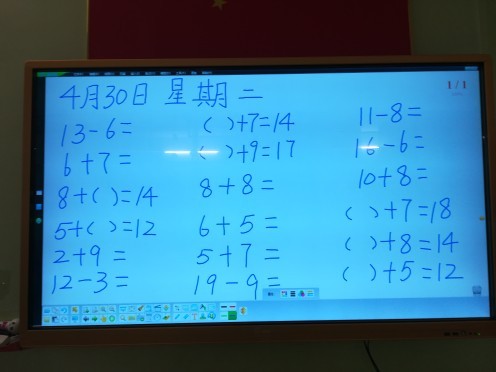 4月30日 星期二
1/1
13-6=
6+7=
8+( )=14
5+( )=12
2+9=
12-3=
( )+7=14
( )+9=17
8+8=
6+5=
5+7=
19-9=
11-8=
16-6=
10+8=
( )+7=18
( )+8=14
( )+5=12